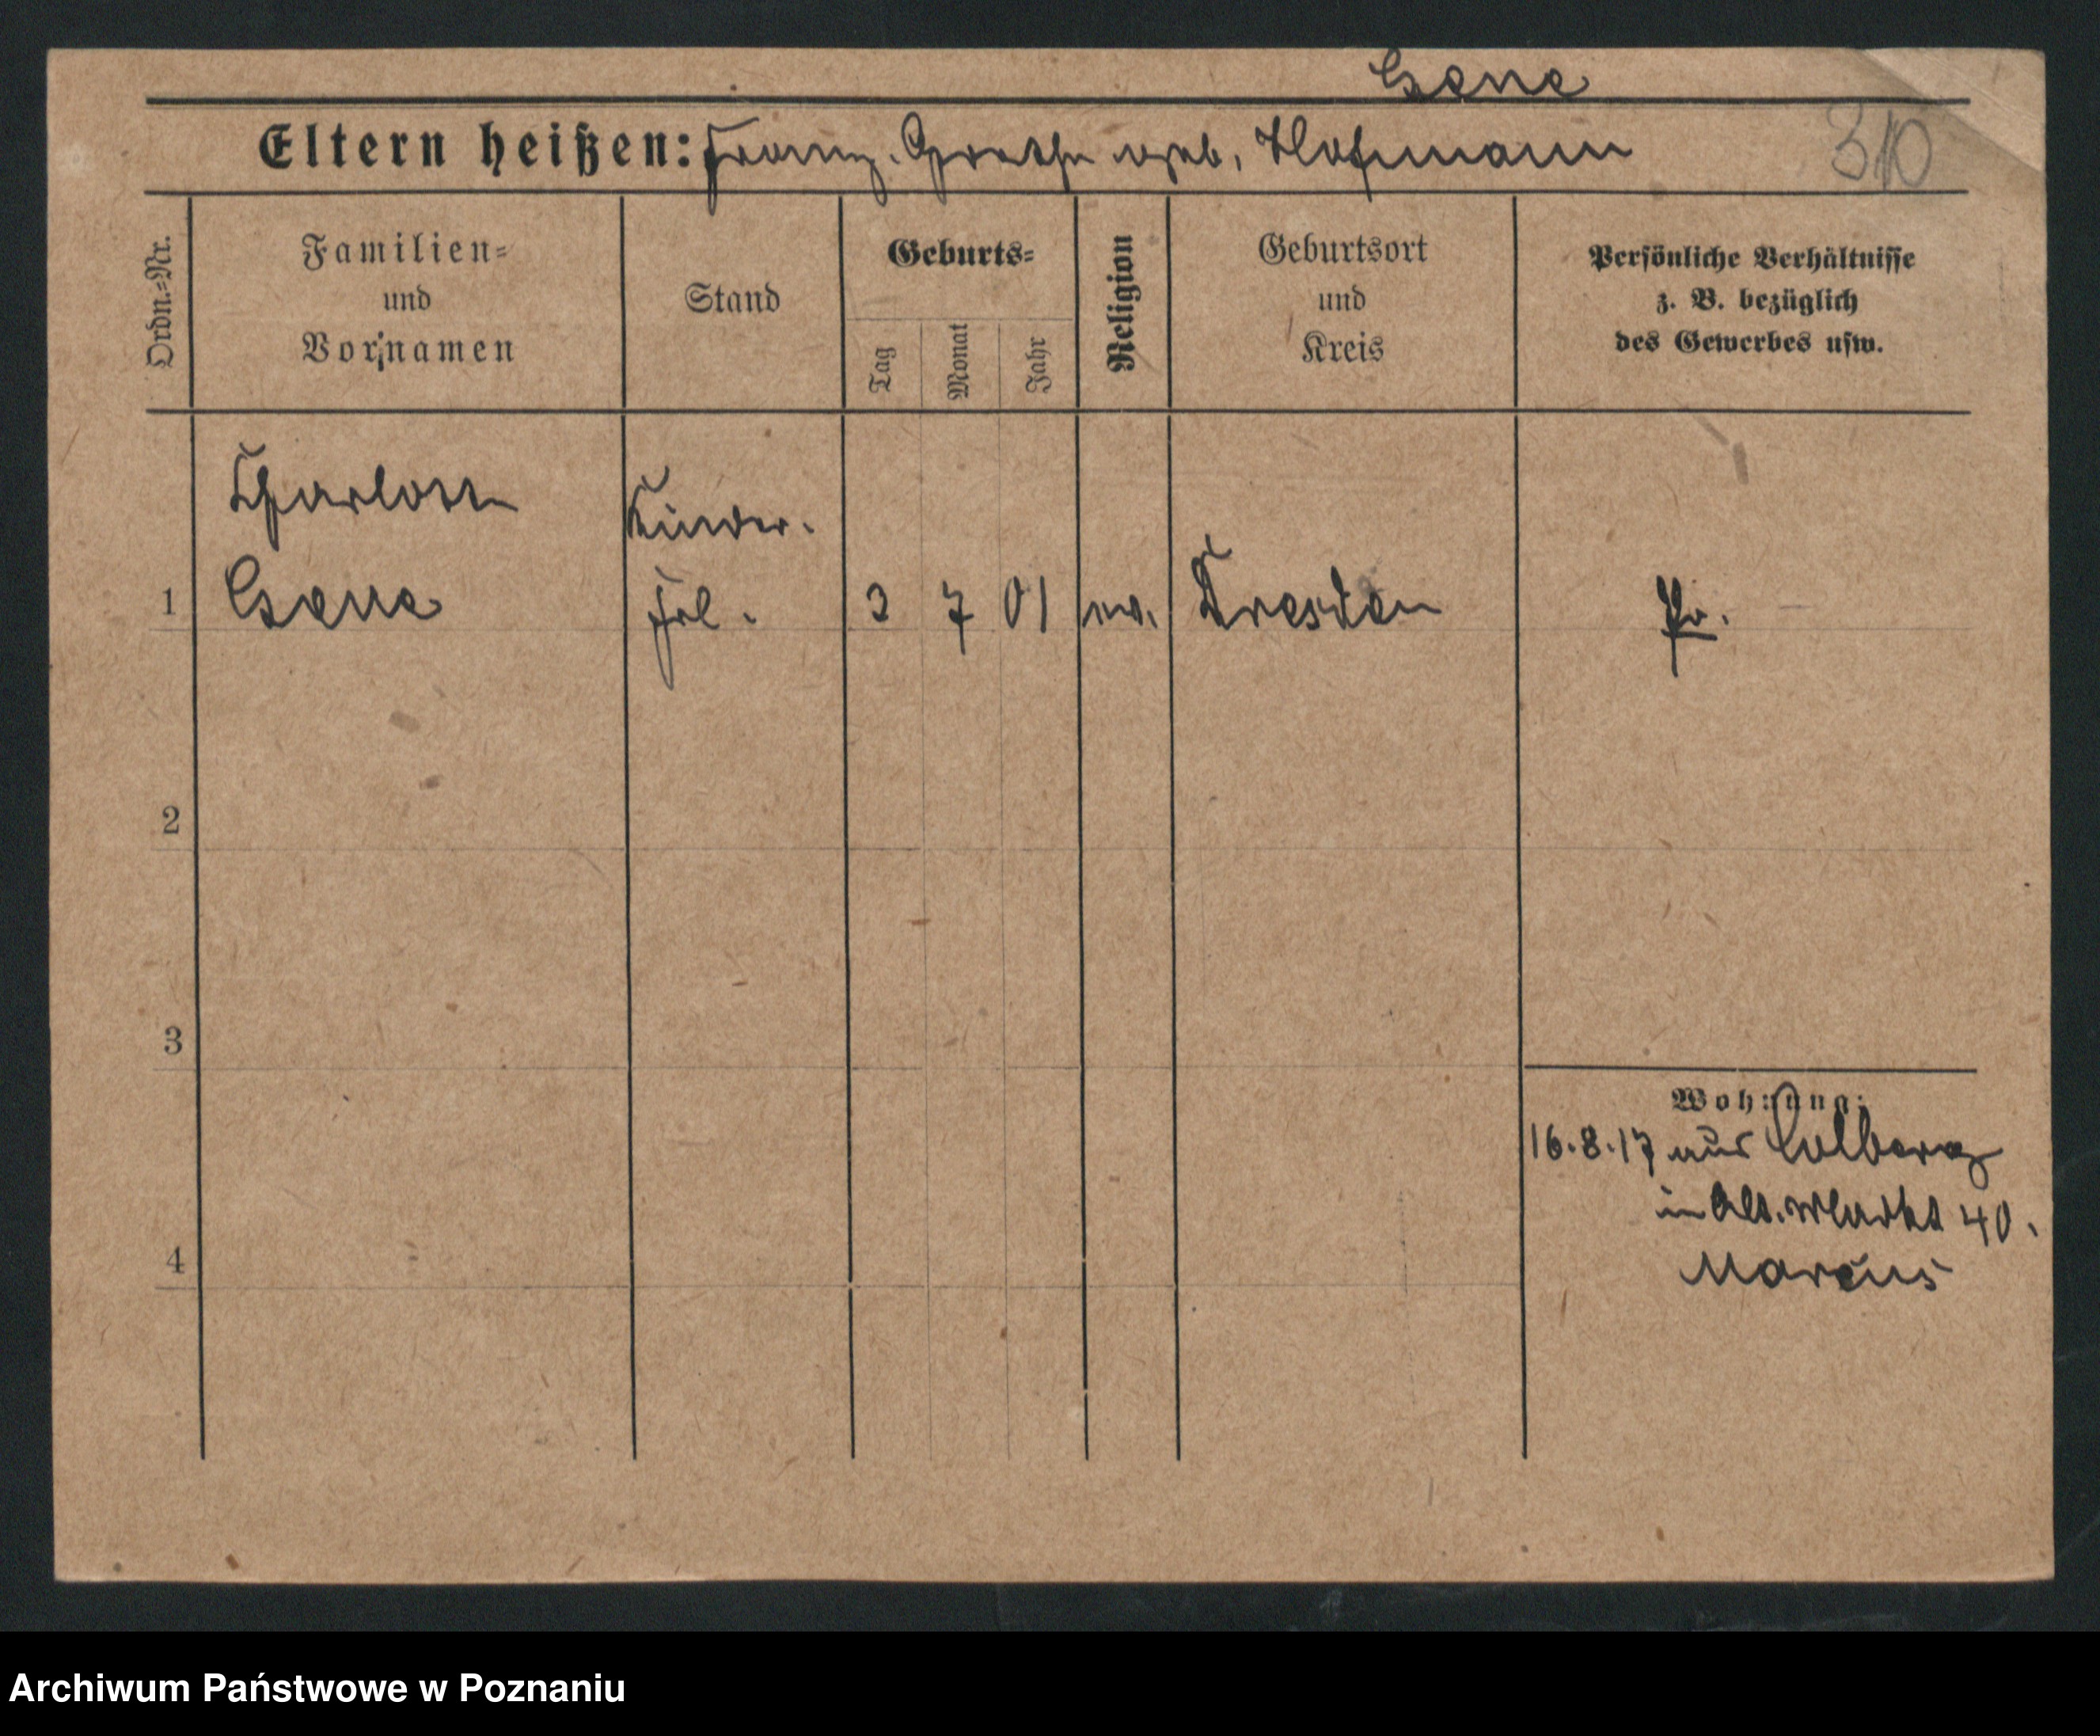 Eltern heißen: Franz. Grethe geb. Hofmann
310
Ordn.-Nr.
Familien-
und
Vornamen
Stand
Geburts-
Tag
Monat
Jahr
Religion
Geburtsort
und
Kreis
Persönliche Verhältnisse
z. B. bezüglich
des Gewerbes usw.
Kinder.
1
frl.
7 01
Dresden
Pr.
2
3
4
Wohnung:
16.8.17 aus Colberg
in Alt. Markt 40.
Marcus
Archiwum Państwowe w Poznaniu